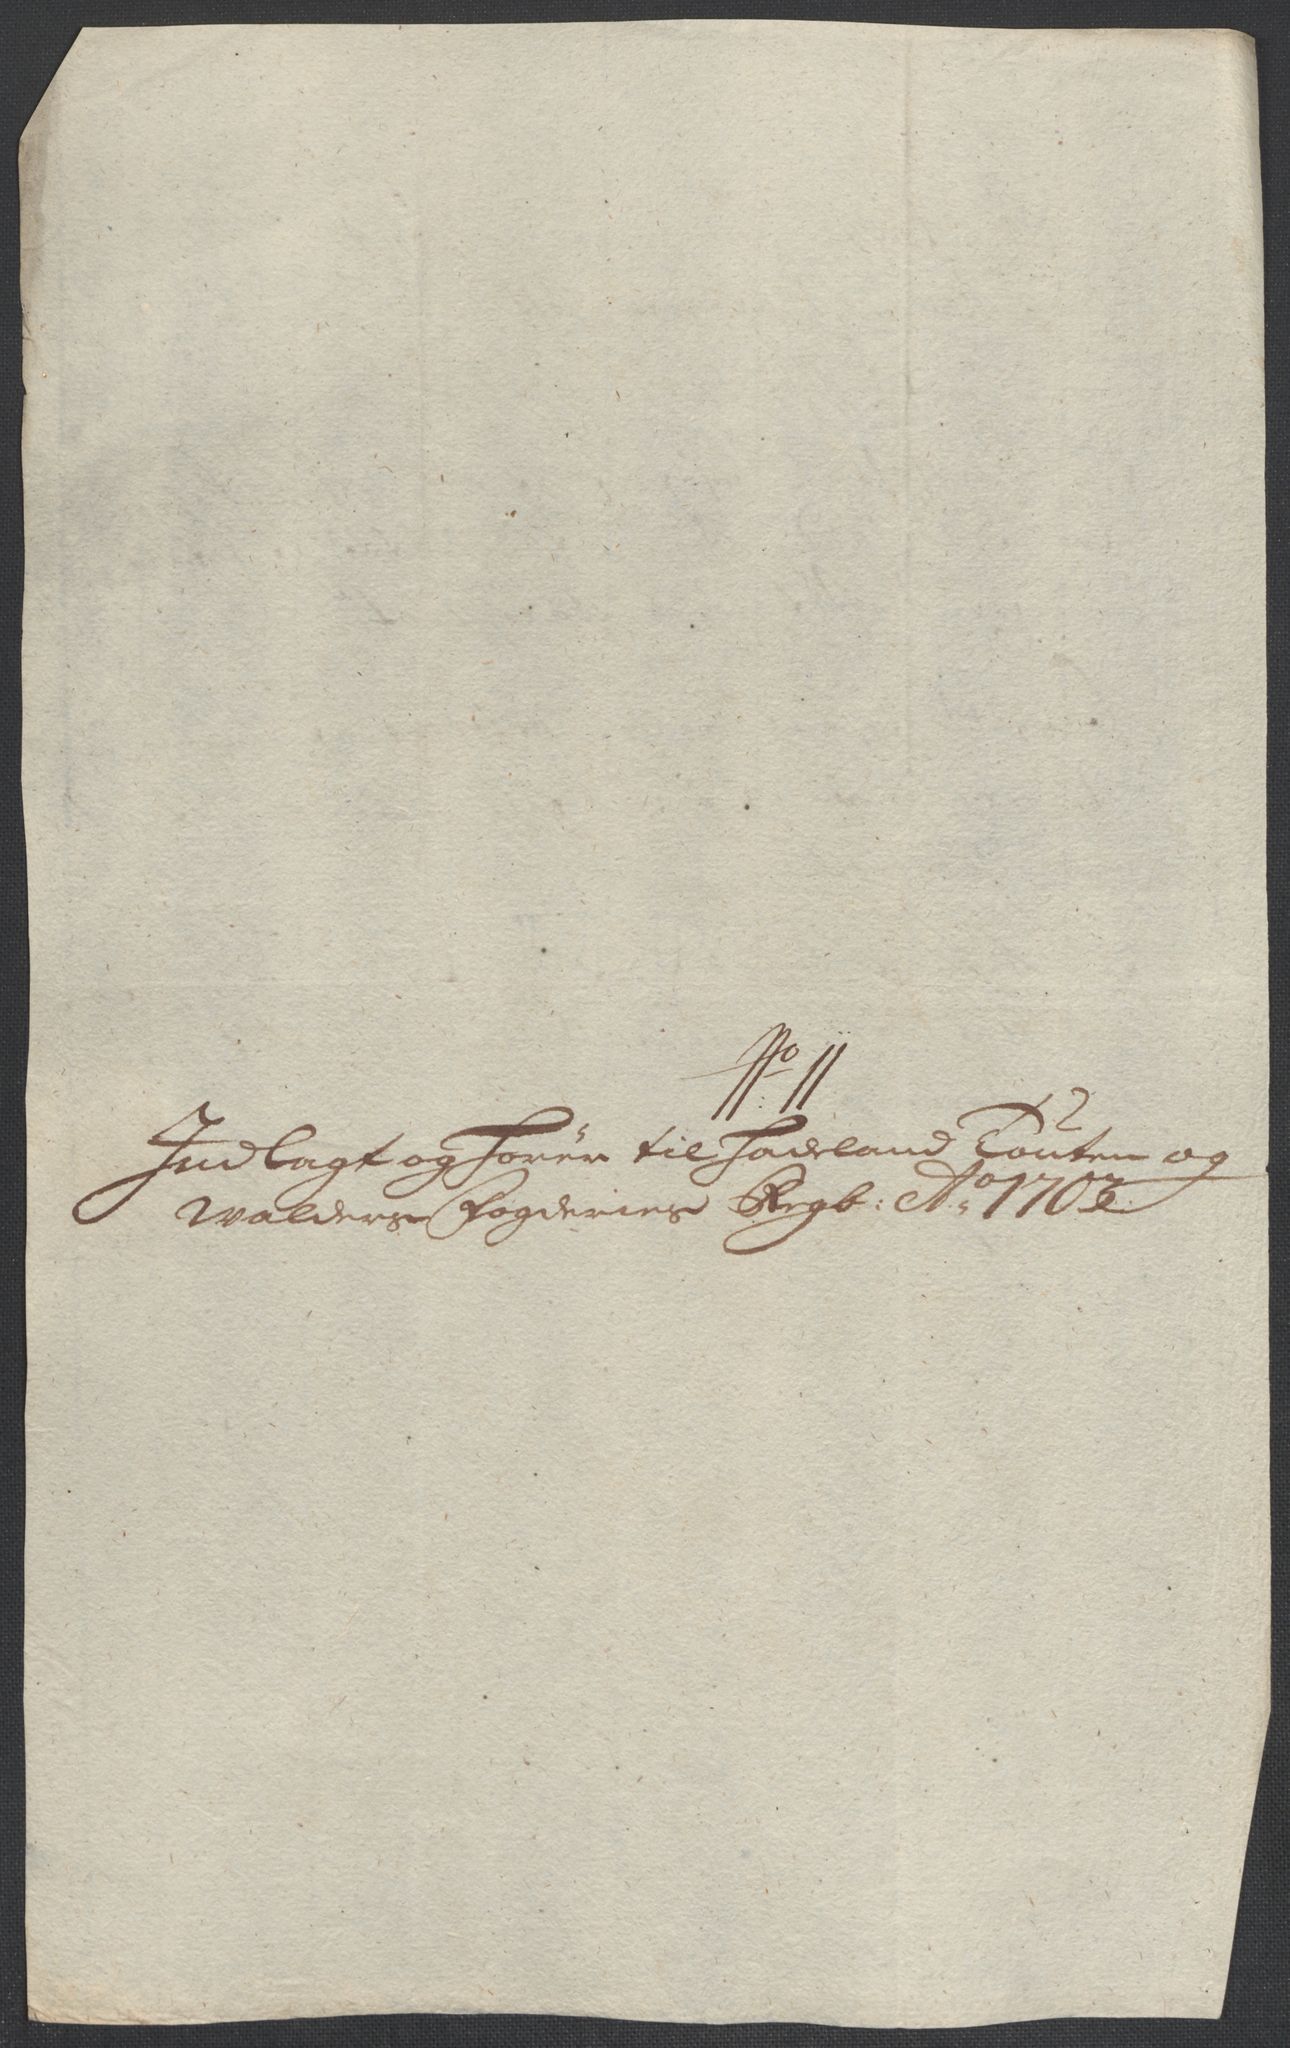 No 11
Indlagt og hører til Hadeland Touten og
Walders Fogderies Regb: Ao 1703.